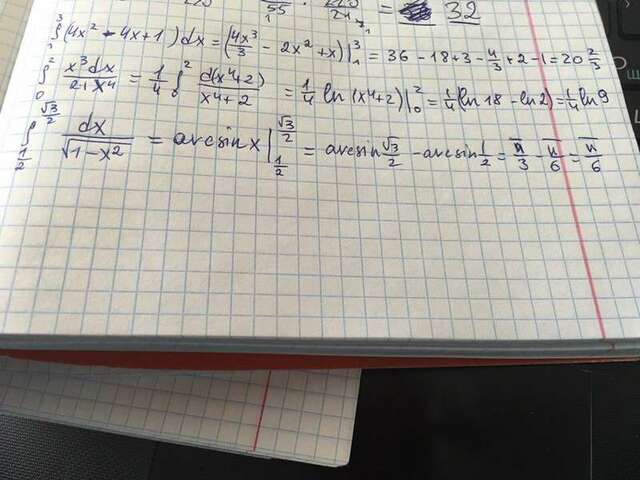 = 32
∫₁³ (4x² - 4x + 1) dx = (4x³/3 - 2x² + x) |₁³ = 36 - 18 + 3 - 4/3 + 2 - 1 = 20 2/3
∫₀² x³dx/(2 + x⁴) = 1/4 ∫₀² d(x⁴+2)/(x⁴+2) = 1/4 ln (x⁴+2) |₀² = 1/4 (ln 18 - ln 2) = 1/4 ln 9
∫_{1/2}^{√3/2} dx/√(1-x²) = arcsin x |_{1/2}^{√3/2} = arcsin √3/2 - arcsin 1/2 = π/3 - π/6 = π/6